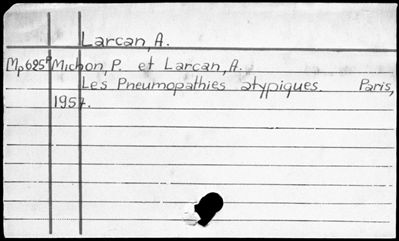 Larcan, A.
Mp 625ᵃ Michon, P. et Larcan, A.
Les Pneumopathies atypiques. Paris,
1957.